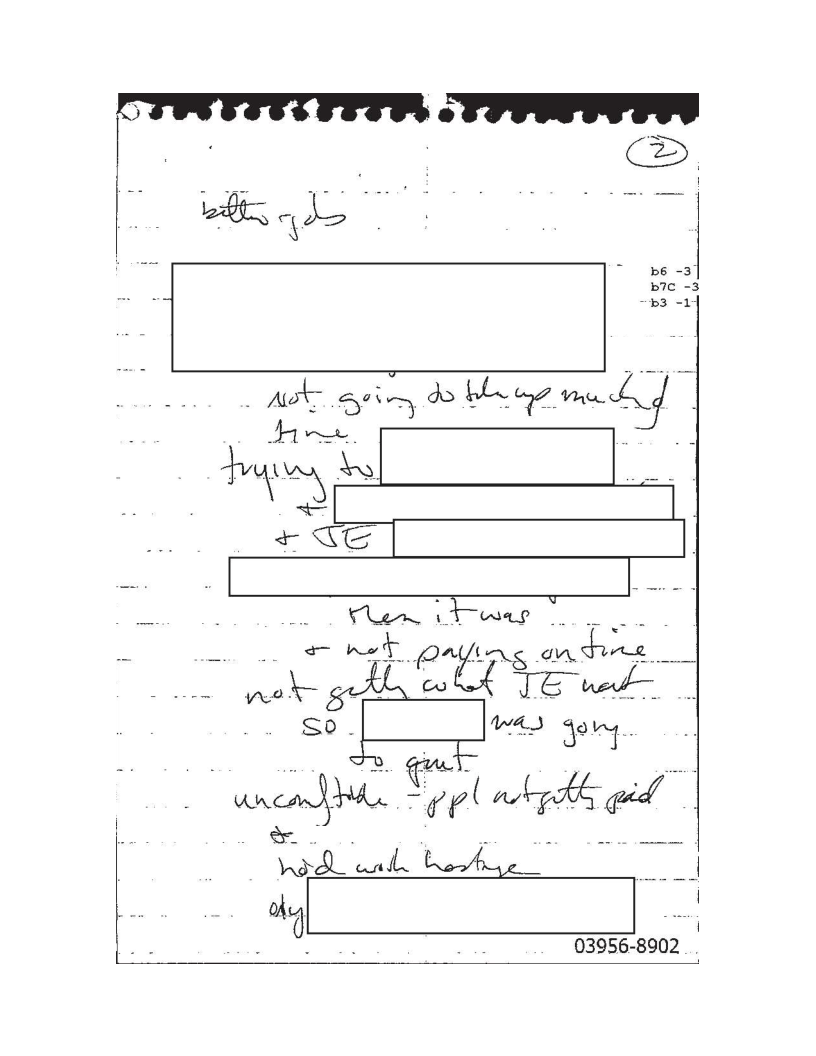 2
b6 -3
b7C -3
b3 -1
not going to take up much of
time
trying to
+
+ JE
then it was
+ not paying on time
not getting what JE want
so was going
to quit
uncomftable - ppl not getting paid
+
hold work hostage
only
03956-8902